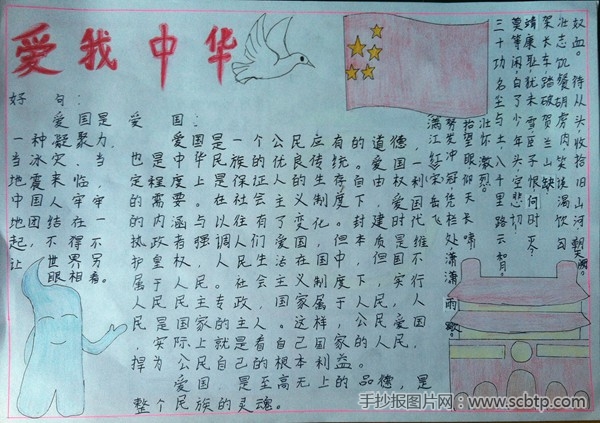 爱我中华
好句:
爱国是
一种凝聚力,
当冰灾、当
地震来临,
中国人牢牢
地团结在一
起,不得不
让世界另
眼相看。
爱国:
爱国是一个公民应有的道德,
也是中华民族的优良传统。爱国一
定程度上是保证人的生存自由权利
的需要。在社会主义制度下,爱国
的内涵与以往有了变化。封建时代
执政者强调人们爱国,但本质是维
护皇权,人民生活在国中,但国不
属于人民。社会主义制度下,实行
人民民主专政,国家属于人民,人
民是国家的主人。这样,公民爱国
,实际上就是看自己国家的人民,
捍为公民自己的根本利益。
爱国,是至高无上的品德,是
整个民族的灵魂。
满江红 岳飞
怒发冲冠,凭栏处、潇潇雨歇。
抬望眼仰天长啸
壮怀激烈。
三十功名尘与土,八千里路云和月。
莫等闲,白了少年头,空悲切!
靖康耻,犹未雪。臣子恨,何时灭?
驾长车,踏破贺兰山缺
壮志饥餐胡虏肉,笑谈渴饮匈
奴血。待从头,收拾旧山河,朝天阙。
手抄报图片网:www.scbtp.com